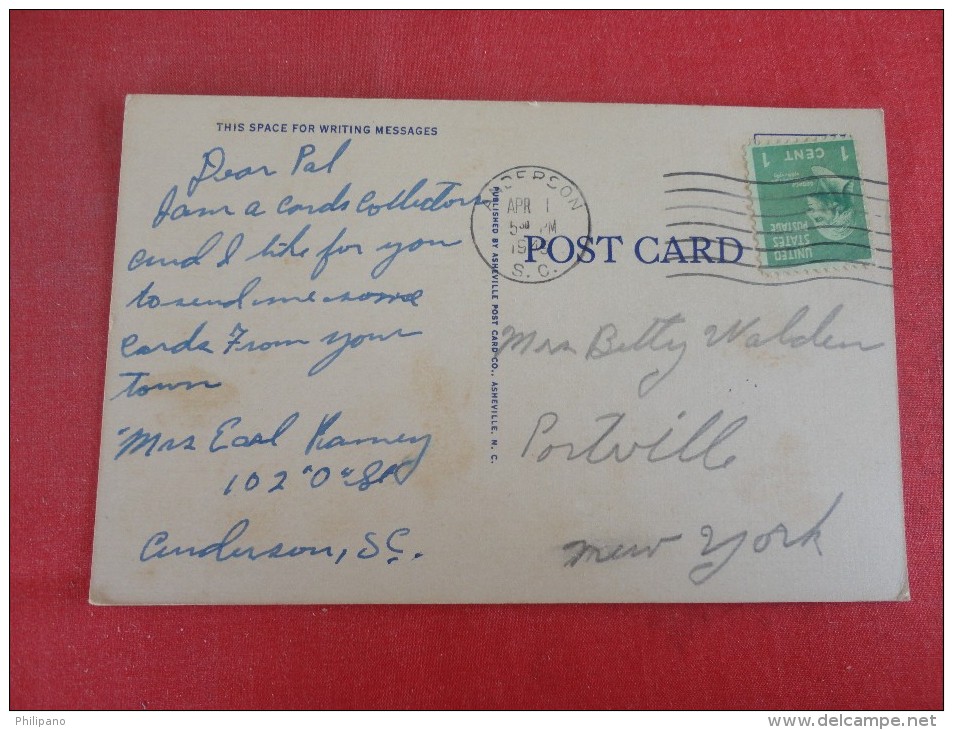 THIS SPACE FOR WRITING MESSAGES
Dear Pal
I am a cards collector
and I like for you
to send me some
cards From your
town
Mrs Earl Ramey
102 "O" St
Anderson, S.C.
PUBLISHED BY ASHEVILLE POST CARD CO., ASHEVILLE, N. C.
ANDERSON
APR 1
5 PM
S. C.
POST CARD
1 CENT 1
UNITED
STATES
POSTAGE
Mrs Betty Walden
Portville
New York
Philipano
www.delcampe.net